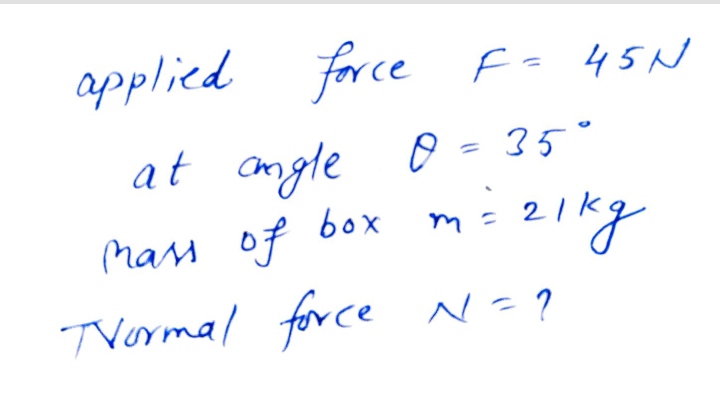 applied force F = 45N
at angle θ = 35°
mass of box m = 21kg
Normal force N = ?